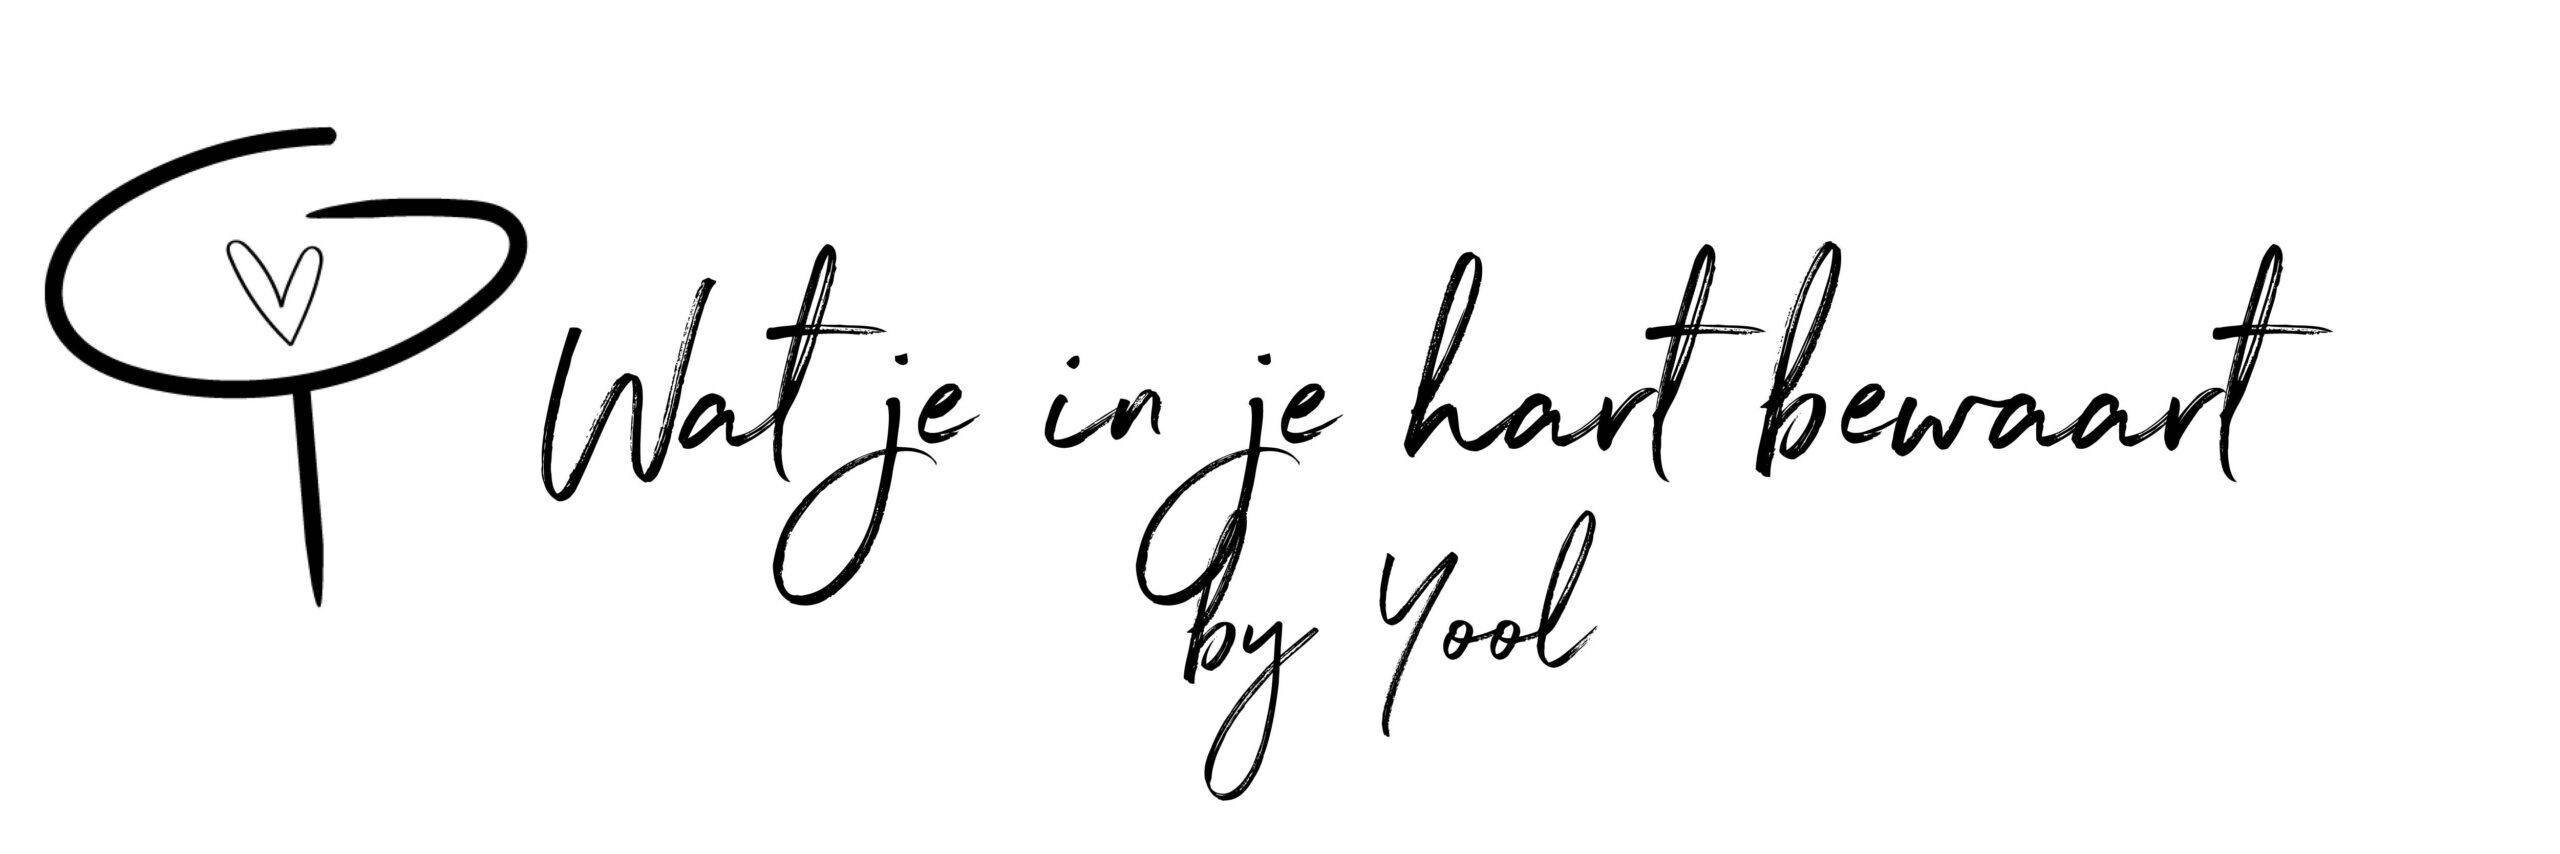 Wat je in je hart bewaart
by Yool